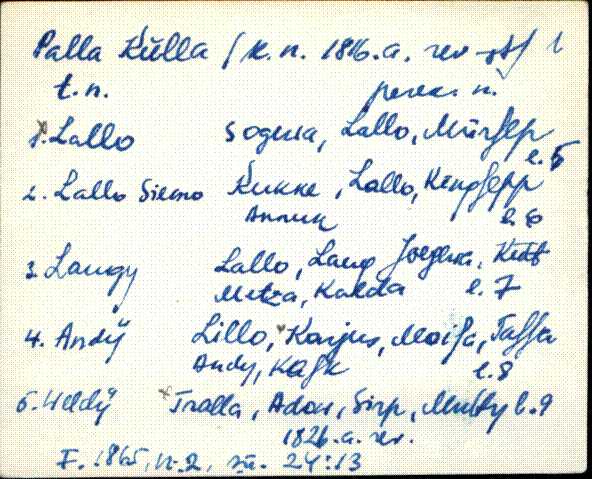 Palla Külla / k. n. 1816.a. rev-st/
t.n. perek. n.
1. Lallo Sogema, Lallo, Mürsep
l. 5
2. Lallo Siemo Kukke, Lallo, Kengsepp
Annuk l. 6
3. Laugy Lallo, Laug, Kett
Metza, Kalda l. 7
4. Andÿ Lillo, Karjus, Moisa, Tassa
Andy, Kask l. 8
5. Uddÿ Tralla, Ado, Sirp, l. 9
1826.a. rev.
F. 1865, n. 2, sü. 24:13